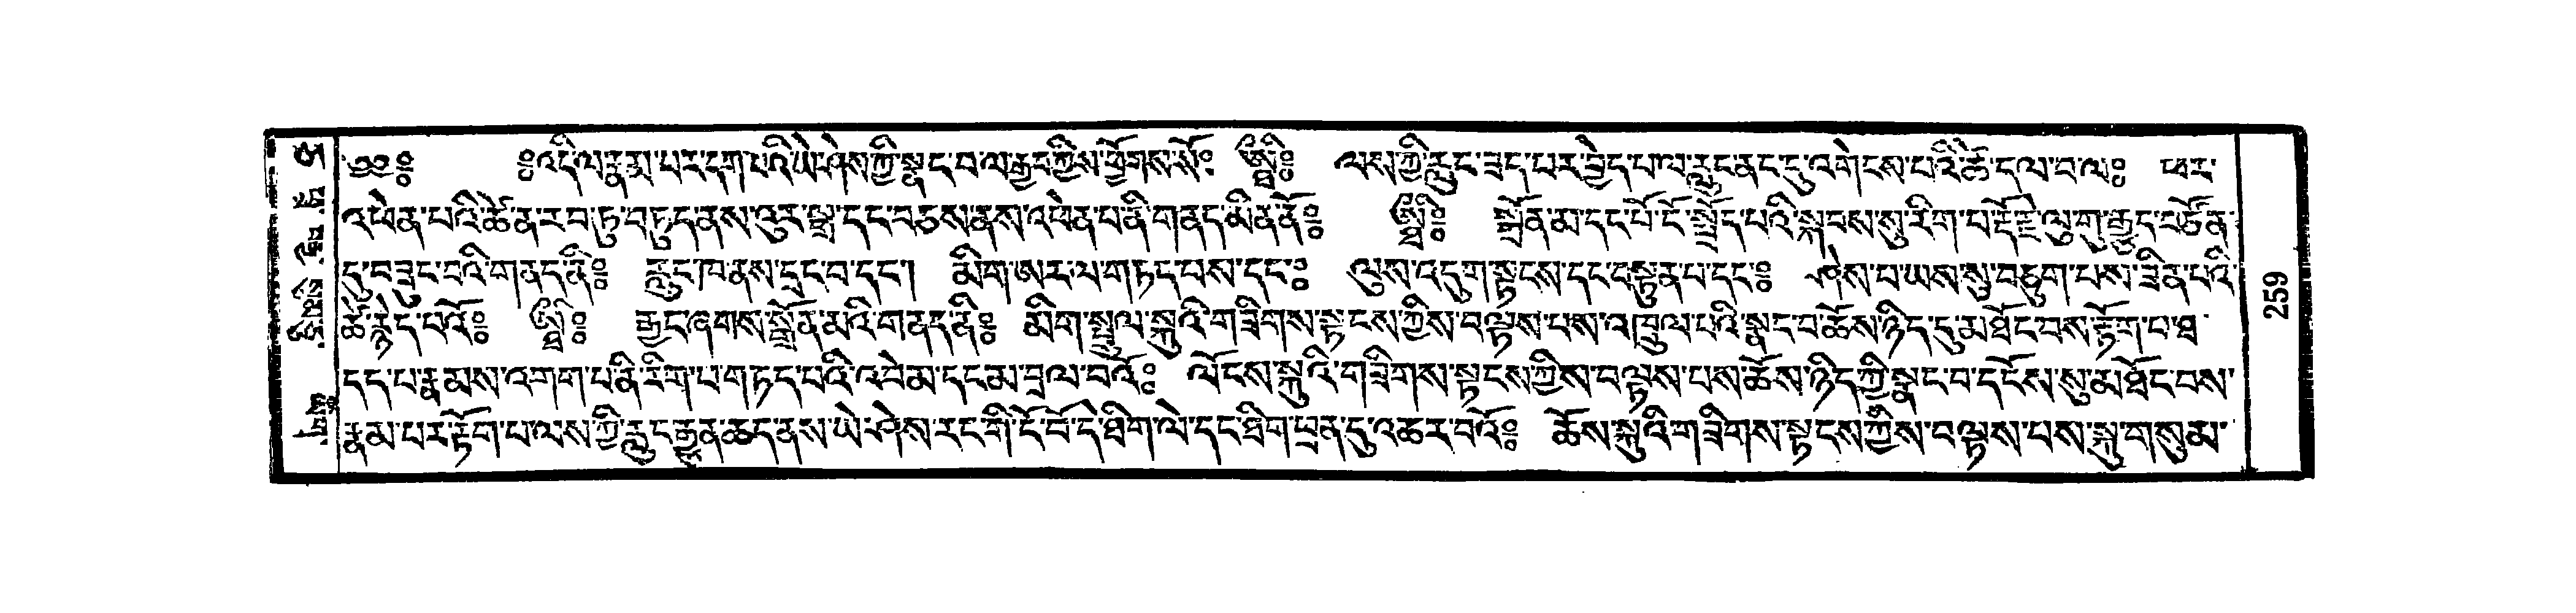 ༄༅༔ ༔འདི་ལ་རྣམ་པར་དག་པའི་ཡེ་ཤེས་ཀྱི་སྣང་བ་ལ་རྒྱང་གྱིས་ཕྱོགས་སོ༔ ཨྠྀ༔ ལས་ཀྱི་རླུང་ཟད་པར་བྱེད་པ་ལ་རླུང་ནང་དུ་འགེངས་པའི་ཚེ་དལ་བལ༔ ཕར་
འཕེན་པའི་ཚེ་ན་རབ་ཏུ་བཏུད་ནས་ལུར་སྒྲ་དང་བཅས་ནས་འཕེན་པ་ནི་གནད་མིན་ནོ༔ ཨྠྀ༔ སྒྲོན་མ་དང་པོ་ངོ་སྤྲོད་པའི་སྐབས་སུ་རིག་པ་རྡོ་རྗེ་ལུ་གུ་རྒྱུད་བཙོན་
དུ་བཟུང་བའི་གནད་ནི༔ རླུང་ཁ་ནས་དྲང་བ་དང་། མིག་ཨར་ལ་གཏད་པས་དང་༔ ལུས་འདུག་སྟངས་དང་བསྟུན་པ་དང་༔ ཤེས་པ་ཡས་སུ་བཅུག་པས་ཟིན་པའི་
ཚེ་རྙེད་པའོ༔ ཨྠྀ༔ རྒྱང་ཞགས་སྒྲོན་མའི་གནད་ནི༔ མིག་སྤྲུལ་སྐུའི་གཟིགས་སྟངས་ཀྱིས་བལྟས་པས་འཁྲུལ་པའི་སྣང་བ་ཆོས་ཉིད་དུ་མཐོང་བས་རྟོག་བ་ཐ་
དད་པ་རྣམས་འགག་པ་ནི་རིག་པ་གཏད་པའི་འབེམ་དང་མ་བྲལ་བའོ༔ ལོངས་སྐུའི་གཟིགས་སྟངས་ཀྱིས་བལྟས་པས་ཆོས་ཉིད་ཀྱི་སྣང་བ་དངོས་སུ་མཐོང་བས་
རྣམ་པར་རྟོག་པ་ལས་ཀྱི་རླུང་རྒྱུན་ཆད་ནས་ཡེ་ཤེས་རང་གི་ངོ་བོ་དེ་ཐིག་ལེ་དང་ཐིག་ཕྲན་དུ་འཆར་བའོ༔ ཆོས་སྐུའི་གཟིགས་སྟངས་ཀྱིས་བལྟས་པས་སྐུ་གསུམ་
259